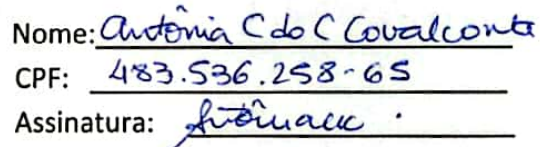 Nome: Antônia C do C Covalconte
CPF: 483.536.258-65
Assinatura: